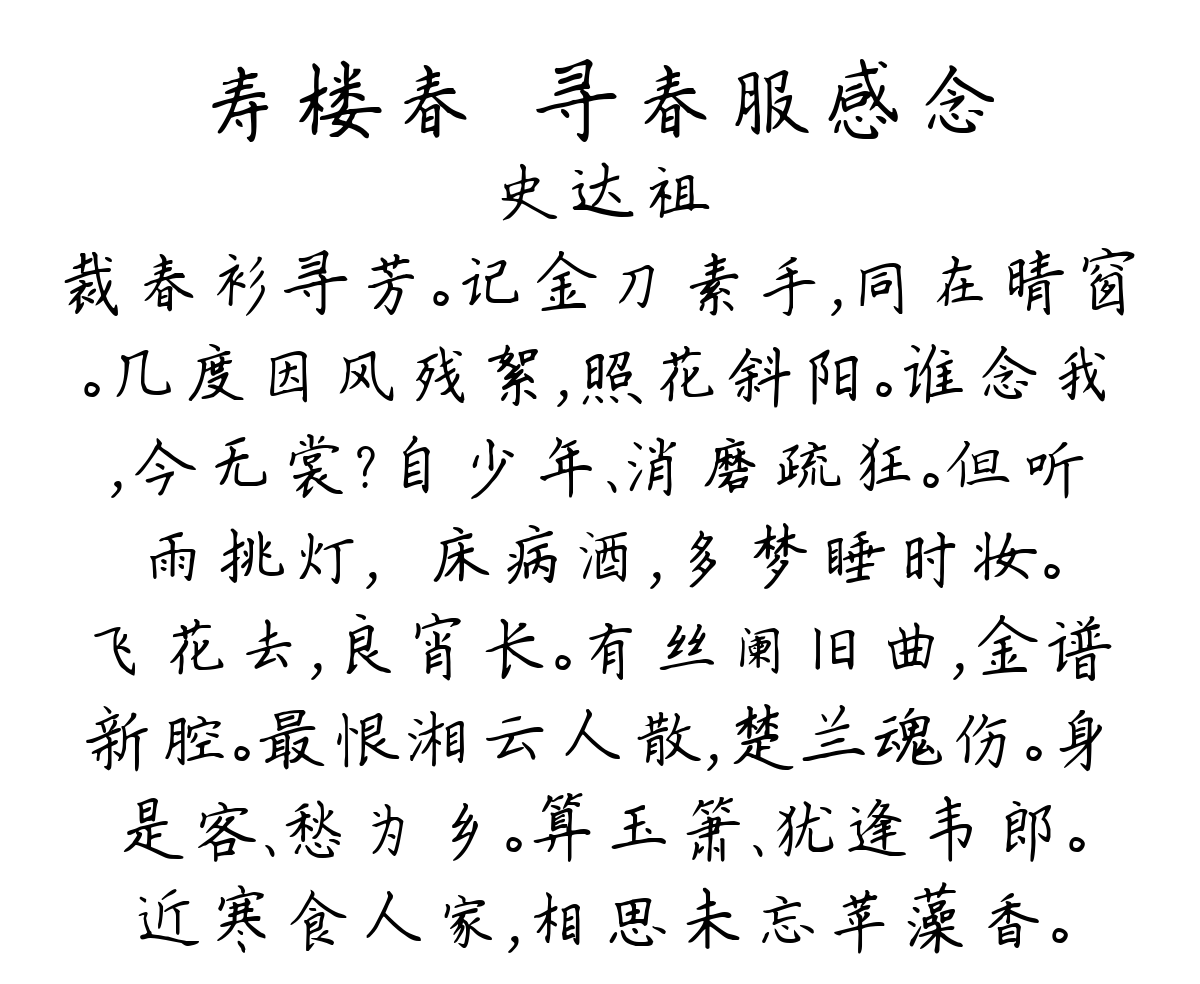 寿楼春 寻春服感念
史达祖
裁春衫寻芳。记金刀素手,同在晴窗
。几度因风残絮,照花斜阳。谁念我
,今无裳?自少年、消磨疏狂。但听
雨挑灯, 床病酒,多梦睡时妆。
飞花去,良宵长。有丝阑旧曲,金谱
新腔。最恨湘云人散,楚兰魂伤。身
是客、愁为乡。算玉箫、犹逢韦郎。
近寒食人家,相思未忘苹藻香。